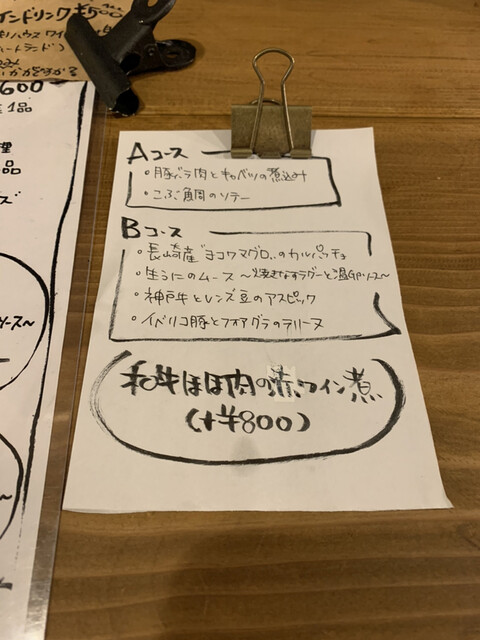 インドリンク ¥500
ハウスワイ
ハートランド)
いかがですか?
600
1品
理
品
ース〜
Aコース
・豚バラ肉とキャベツの煮込み
・こぶ鯛のソテー
Bコース
・長崎産"ヨコワマグロ"のカルパッチョ
・生うにのムース 〜焼きなすラグーと温
・神戸牛とレンズ豆のアスピック
・イベリコ豚とフォアグラのテリーヌ
和牛ほほ肉の赤ワイン煮
(+¥800)